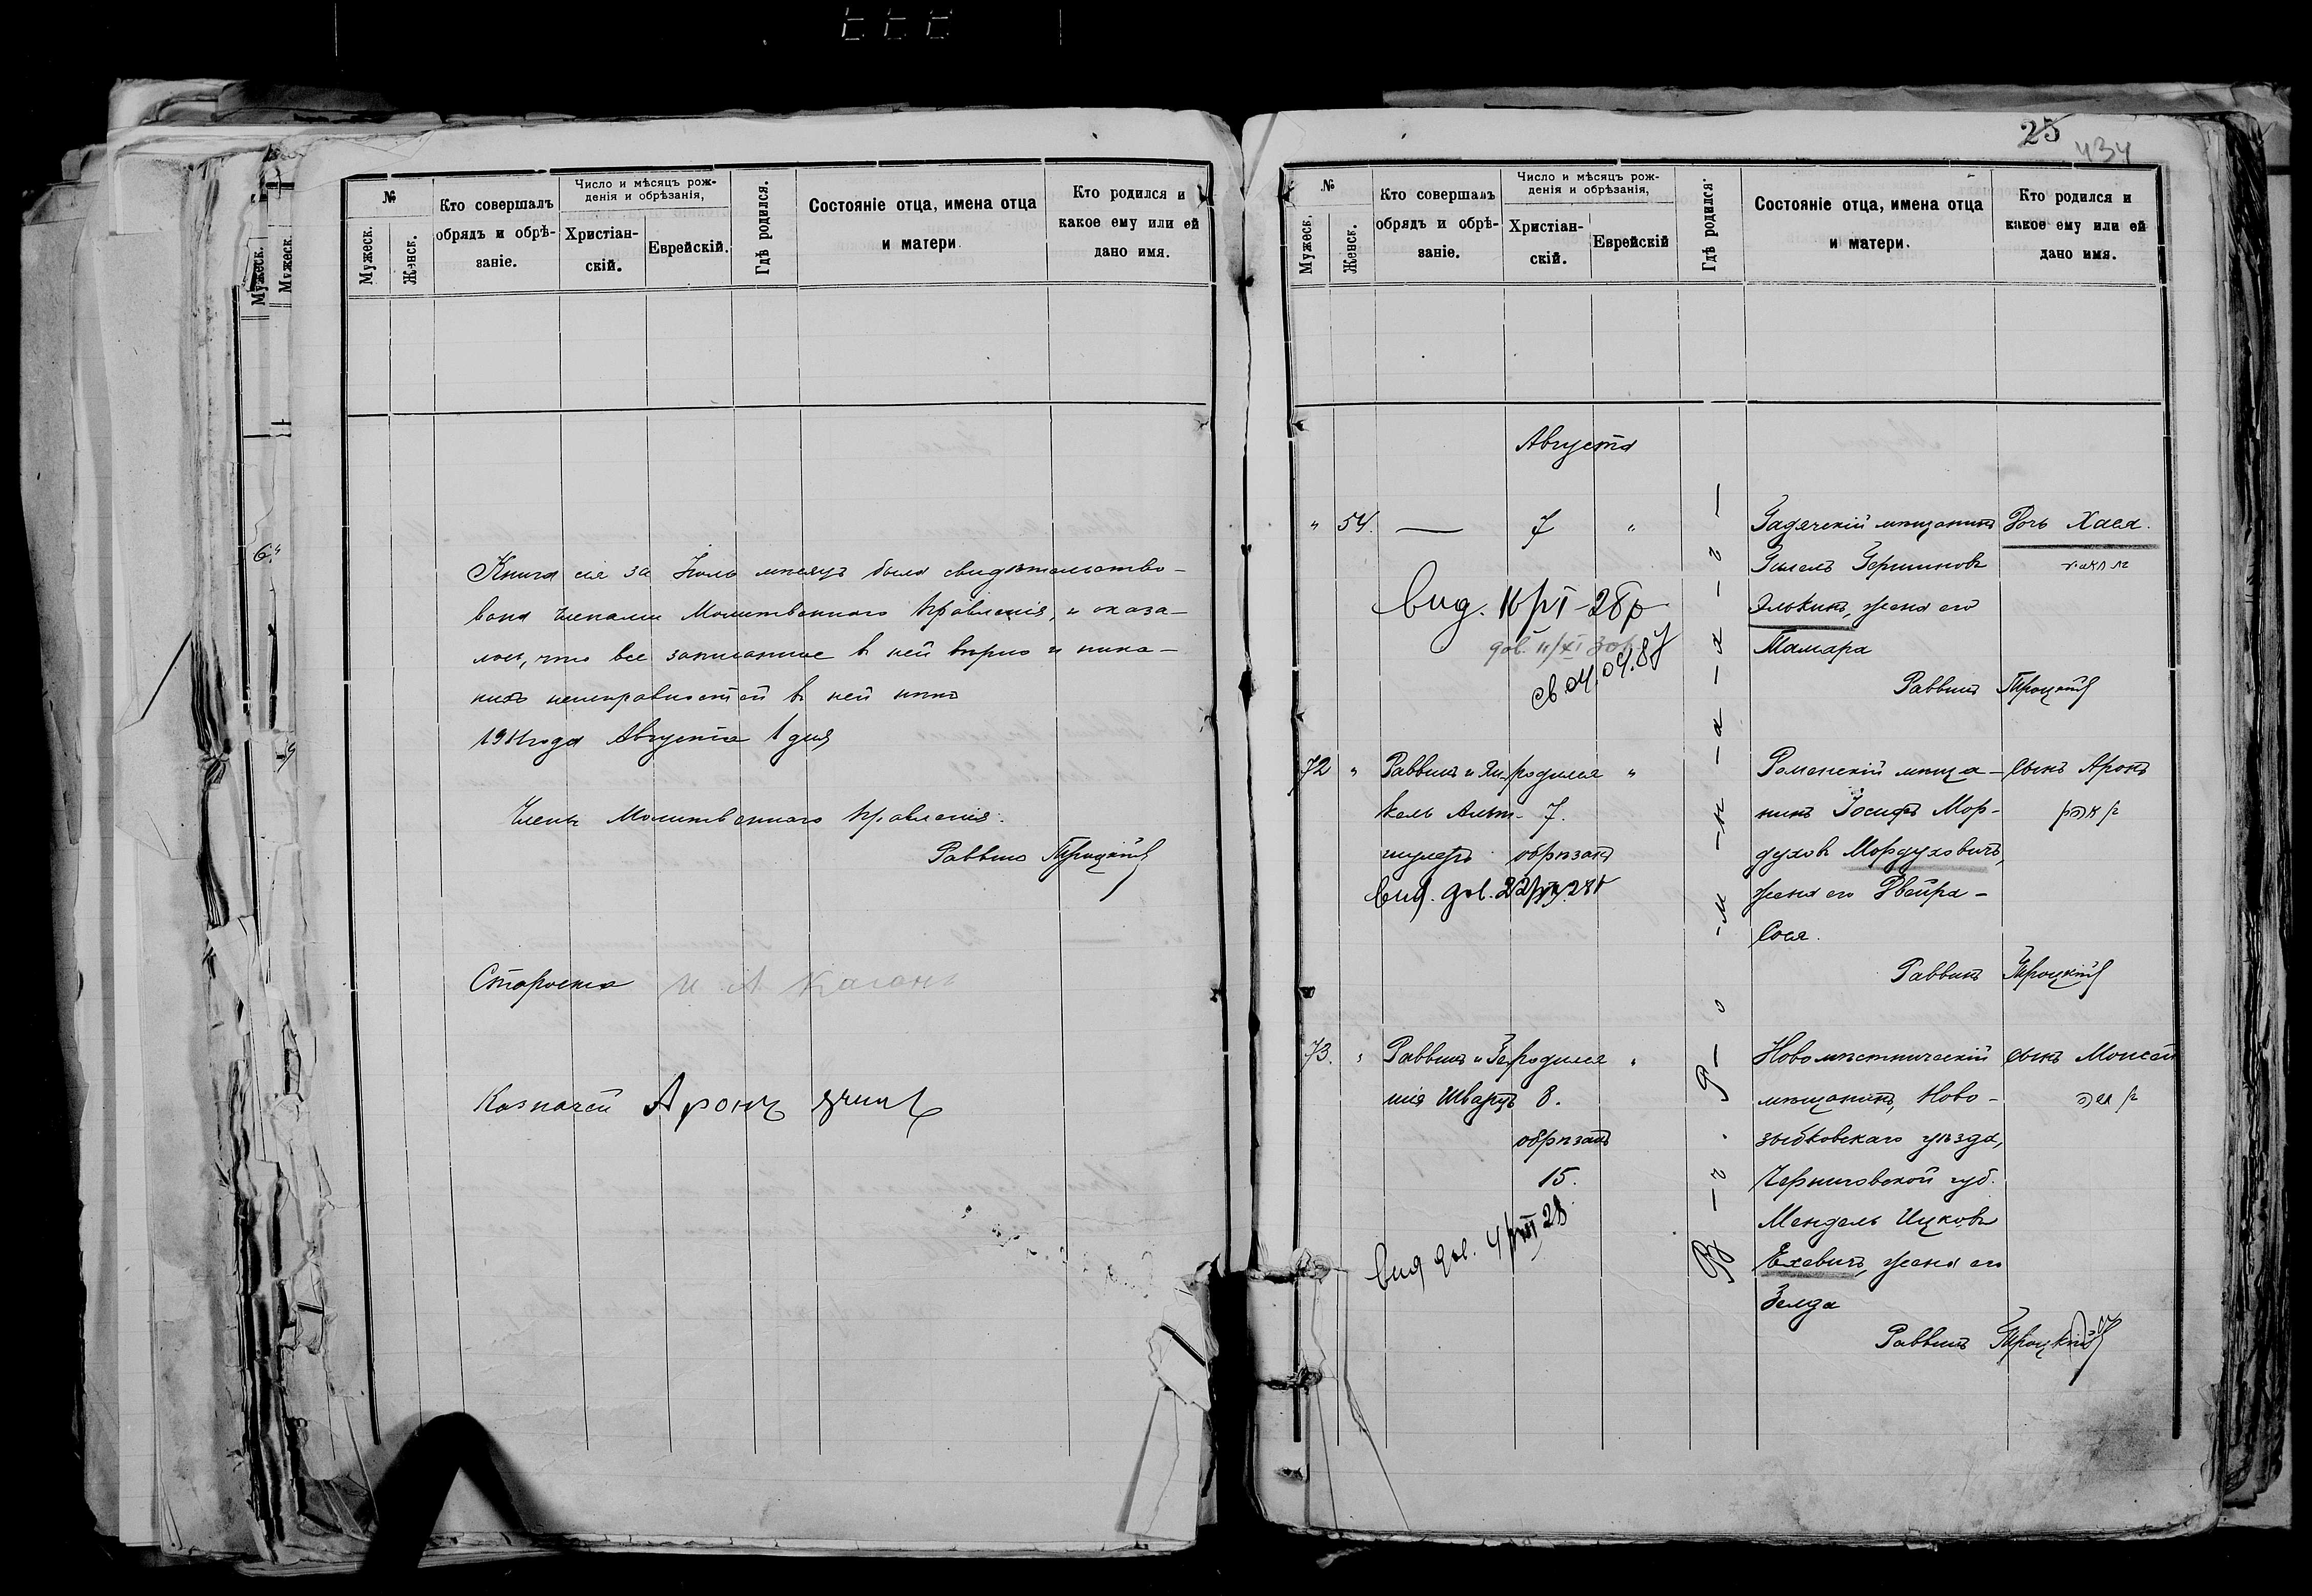 №
Мужеск.
Женск.
Кто совершалъ
обрядъ и обрѣ-
заніе.
Число и мѣсяцъ рож-
денія и обрѣзанія,
Христіан-
скій.
Еврейскій.
Гдѣ родился.
Состояніе отца, имена отца
и матери.
Кто родился и
какое ему или ей
дано имя.
Книга сія за Іюль мѣсяцъ была свидѣтельство-
вана членами Молитвеннаго Правленія, и оказа-
лось, что все записанное въ ней вѣрно и ника-
кихъ неисправностей въ ней нѣтъ
1911 года Августа 1 дня
Члены Молитвеннаго Правленія.
Раввинъ Троцкій
Староста И А Каганъ
Казначей Аронъ
25
434
№
Мужеск.
Женск.
Кто совершалъ
обрядъ и обрѣ-
заніе.
Число и мѣсяцъ рож-
денія и обрѣзанія,
Христіан-
скій.
Еврейскій
Гдѣ родился.
Состояніе отца, имена отца
и матери.
Кто родился и
какое ему или ей
дано имя.
Августа
" 54. — 7 " Гадячскій мѣщанинъ Дочь Хася.
Гилель Гершиновъ
Элькинъ, жена его
Тамара
Раввинъ Троцкій
св. 04.04.87
72 " Раввинъ и Ян- родился " Роменскій мѣща- сынъ Аронъ
кель Альт- 7. нинъ Іосифъ Мор-
шулеръ обрѣзанъ духовъ Мордуховичъ,
жена его Двейра-
Сося.
Раввинъ Троцкій
73. " Раввинъ и Гер- родился " Новомѣстническій сынъ Моисей
шія Шварцъ 8. мѣщанинъ, Ново-
обрѣзанъ зыбковскаго уѣзда,
15. Черниговской губ.
Мендель Ицковъ
Ехевичъ, жена его
Зелда
Раввинъ Троцкій